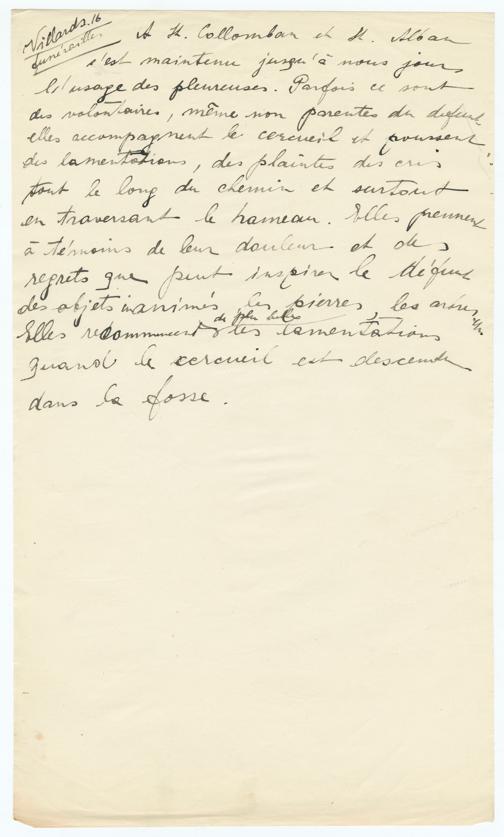 Villards.16
funérailles
A St. Collomban et St. Alban
s'est maintenu jusqu'à nous jours
l'usage des pleureuses. Parfois ce sont
des volontaires, même non parentes du défunt
elles accompagnent le cercueil et poussent
des lamentations, des plaintes des cris
tout le long du chemin et surtout
en traversant le hameau. Elles prennent
à témoins de leur douleur et des
regrets que peut inspirer le défunt
des objets inanimés les pierres, les arbres
Elles recommencent de plus belle les lamentations
quand le cercueil est descendu
dans la fosse.